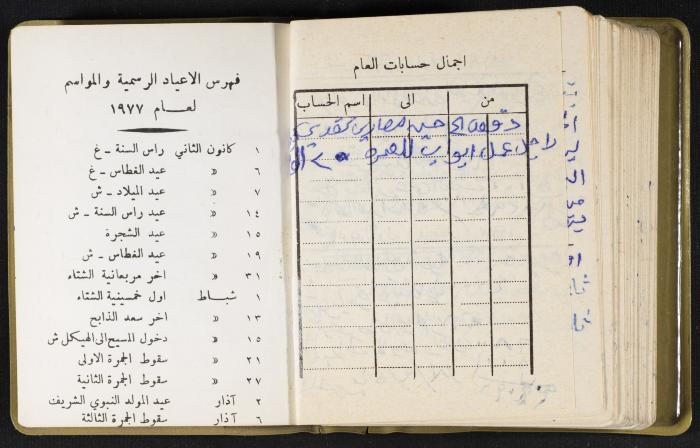 فهرس الاعياد الرسمية والمواسم
لعام ١٩٧٧
١ كانون الثاني راس السنة - غ
٦ » عيد الغطاس - غ
٧ » عيد الميلاد - ش
١٤ » عيد راس السنة - ش
١٥ » عيد الشجرة
١٩ » عيد الغطاس - ش
٣١ » اخر مربعانية الشتاء
١ شباط اول خمسينية الشتاء
١٣ » اخر سعد الذابح
١٥ » دخول المسيح الى الهيكل ش
٢١ » سقوط الجمرة الاولى
٢٧ » سقوط الجمرة الثانية
٢ آذار عيد المولد النبوي الشريف
٦ آذار سقوط الجمرة الثالثة
اجمال حسابات العام
من الى اسم الحساب
عمل ابواب